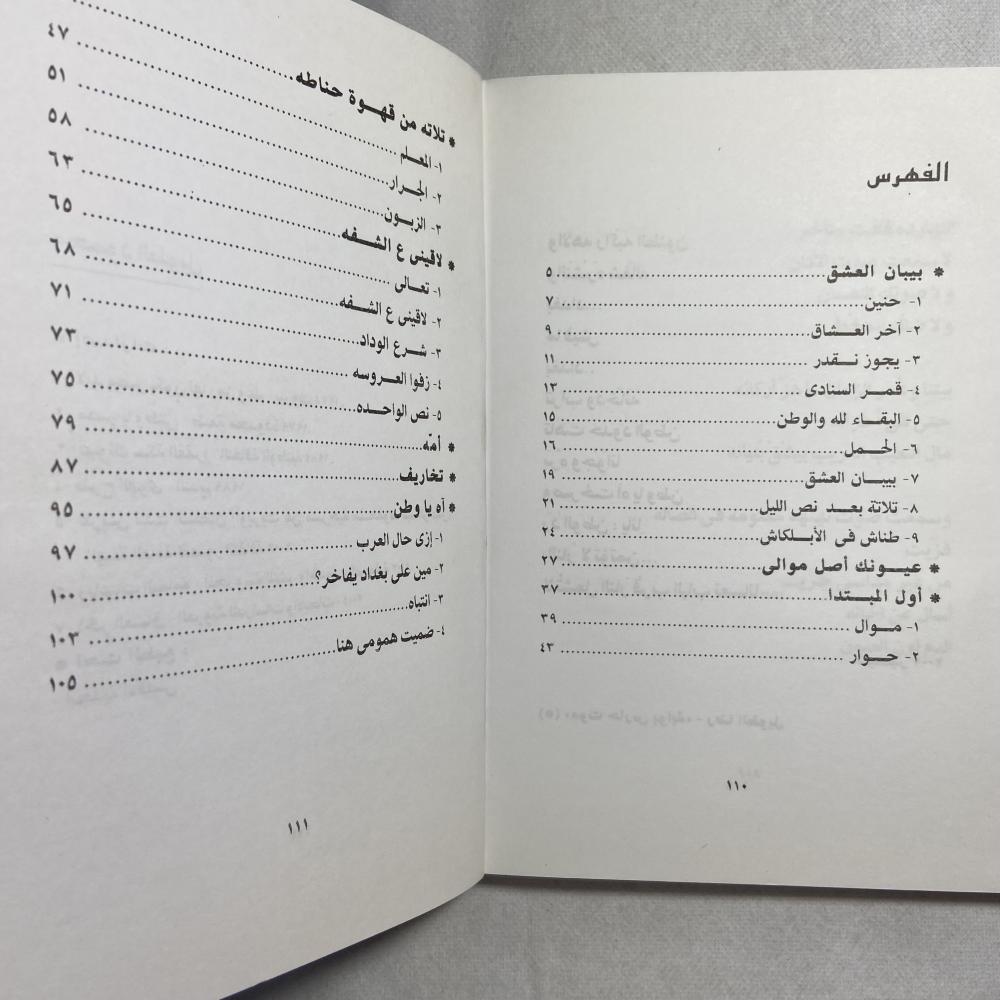 الفهرس
* بيبان العشق ........ ٥
١- حنين ........ ٧
٢- آخر العشاق ........ ٩
٣- يجوز نقدر ........ ١١
٤- قمر السنادى ........ ١٣
٥- البقاء لله والوطن ........ ١٥
٦- الحمل ........ ١٦
٧- بيبان العشق ........ ١٩
٨- تلاتة بعد نص الليل ........ ٢١
٩- طناش فى الأبلكاش ........ ٢٤
* عيونك أصل موالى ........ ٢٧
* أول المبتدا ........ ٣٧
١- موال ........ ٣٩
٢- حوار ........ ٤٣
١١٠
* تلاته من قهوة حناطه ........
١- المعلم ........ ٤٧
٢- الجرار ........ ٥١
٣- الزبون ........ ٥٨
* لاقينى ع الشفه ........ ٦٣
١- تعالى ........ ٦٥
٢- لاقينى ع الشفه ........ ٦٨
٣- شرع الوداد ........ ٧١
٤- زفوا العروسه ........ ٧٣
٥- نص الواحده ........ ٧٥
* أمّه ........ ٧٩
* تخاريف ........ ٨٧
* آه يا وطن ........ ٩٥
١- إزى حال العرب ........ ٩٧
٢- مين على بغداد يفاخر؟ ........ ١٠٠
٣- انتباه ........ ١٠٣
٤- ضميت همومى هنا ........ ١٠٥
١١١